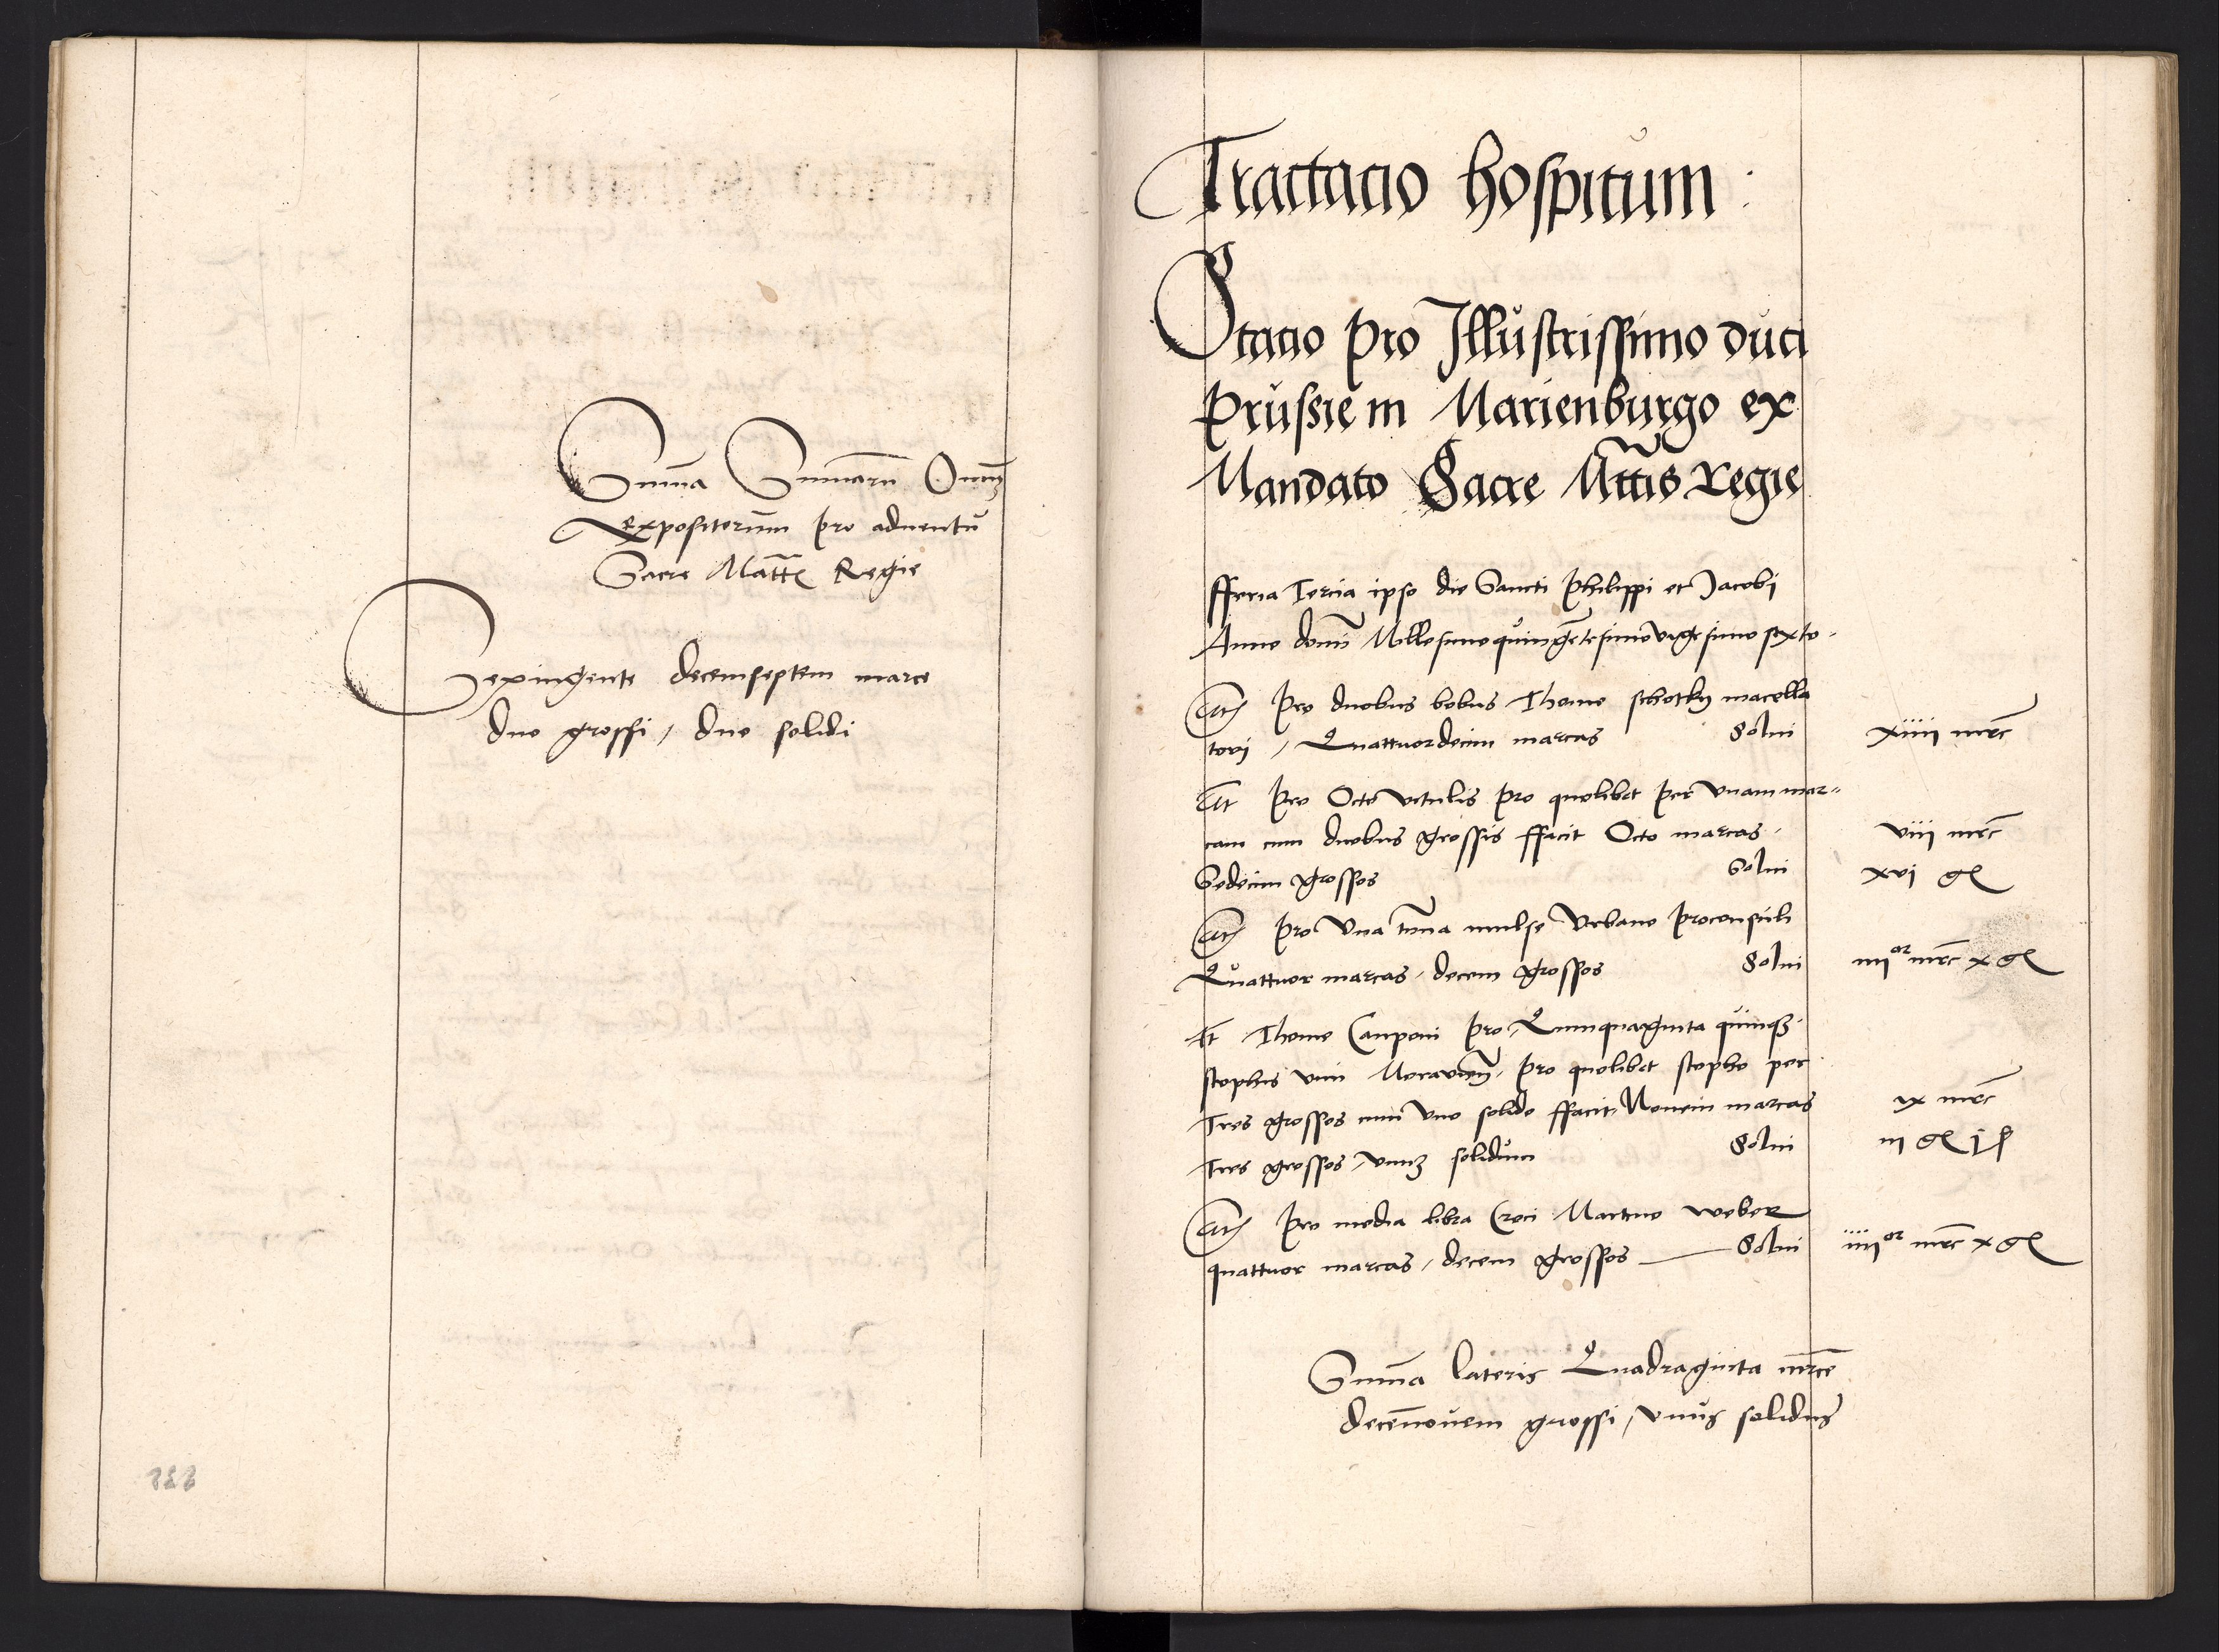 Sum̄a Sum̄arū Om̄iū
Expositorum pro aduentu
Sacre Matt̄ꝭ Regie
Sexingente decemseptem marce
duo grossi / duo solidi
Tractatio hospitum
Statio pro Illustrissimo duci
Prussie in Marienburgo ex
Mandato Sacre Mt̄tis Regie
fferia Tercia ipso die Sancti Philippi et Jacobi
Anno domī Millesimo quingētesimo vigesimo sexto
It Pro duobus bobus Thome schotky macella
torj / Quattuordecim marcas Solui xiiii mrc̄
It Pro Octo vitulis pro quolibet per vnam mar-
cam cum duobus grossis ffacit Octo marcas viii mrc̄
Sedecim grossos Solui xvi gꝭ
It Pro Vna tūna mulse Vrbano proconsuli
Quattuor marcas / decem grossos Solui iiiiᵒʳ mrc̄ x gꝭ
It Thome Cauponi pro Quinquaginta quinqꝫ
stophis vini Morauieñ, pro quolibet stopho per
Tres grossos cum vno solido ffacit Nouem marcas ix mrc̄
Tres grossos / vnuꝫ solidum Solui iii gꝭ j ꝭ
It Pro media libra Croci Martino weber
quattuor marcas / decem grossos Solui iiiiᵒʳ mrc̄ x gꝭ
Sum̄a lateris Quadraginta mrc̄e
decēnouem grossi / vnus solidus